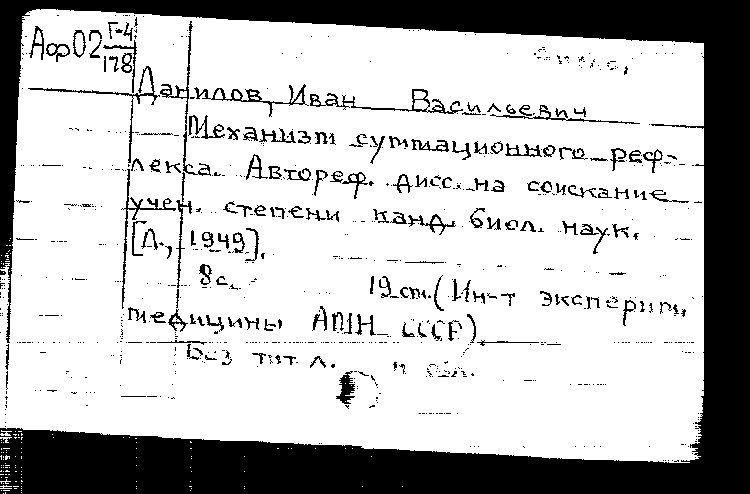 Аф02 Г-4/178
Данилов, Иван Васильевич
Механизм суммационного реф-
лекса. Автореф. дисс. на соискание
учен. степени канд. биол. наук.
[Л., 1949].
8 с. 19 см. (Ин-т эксперим.
медицины АМН СССР).
Без тит. л. и обл.